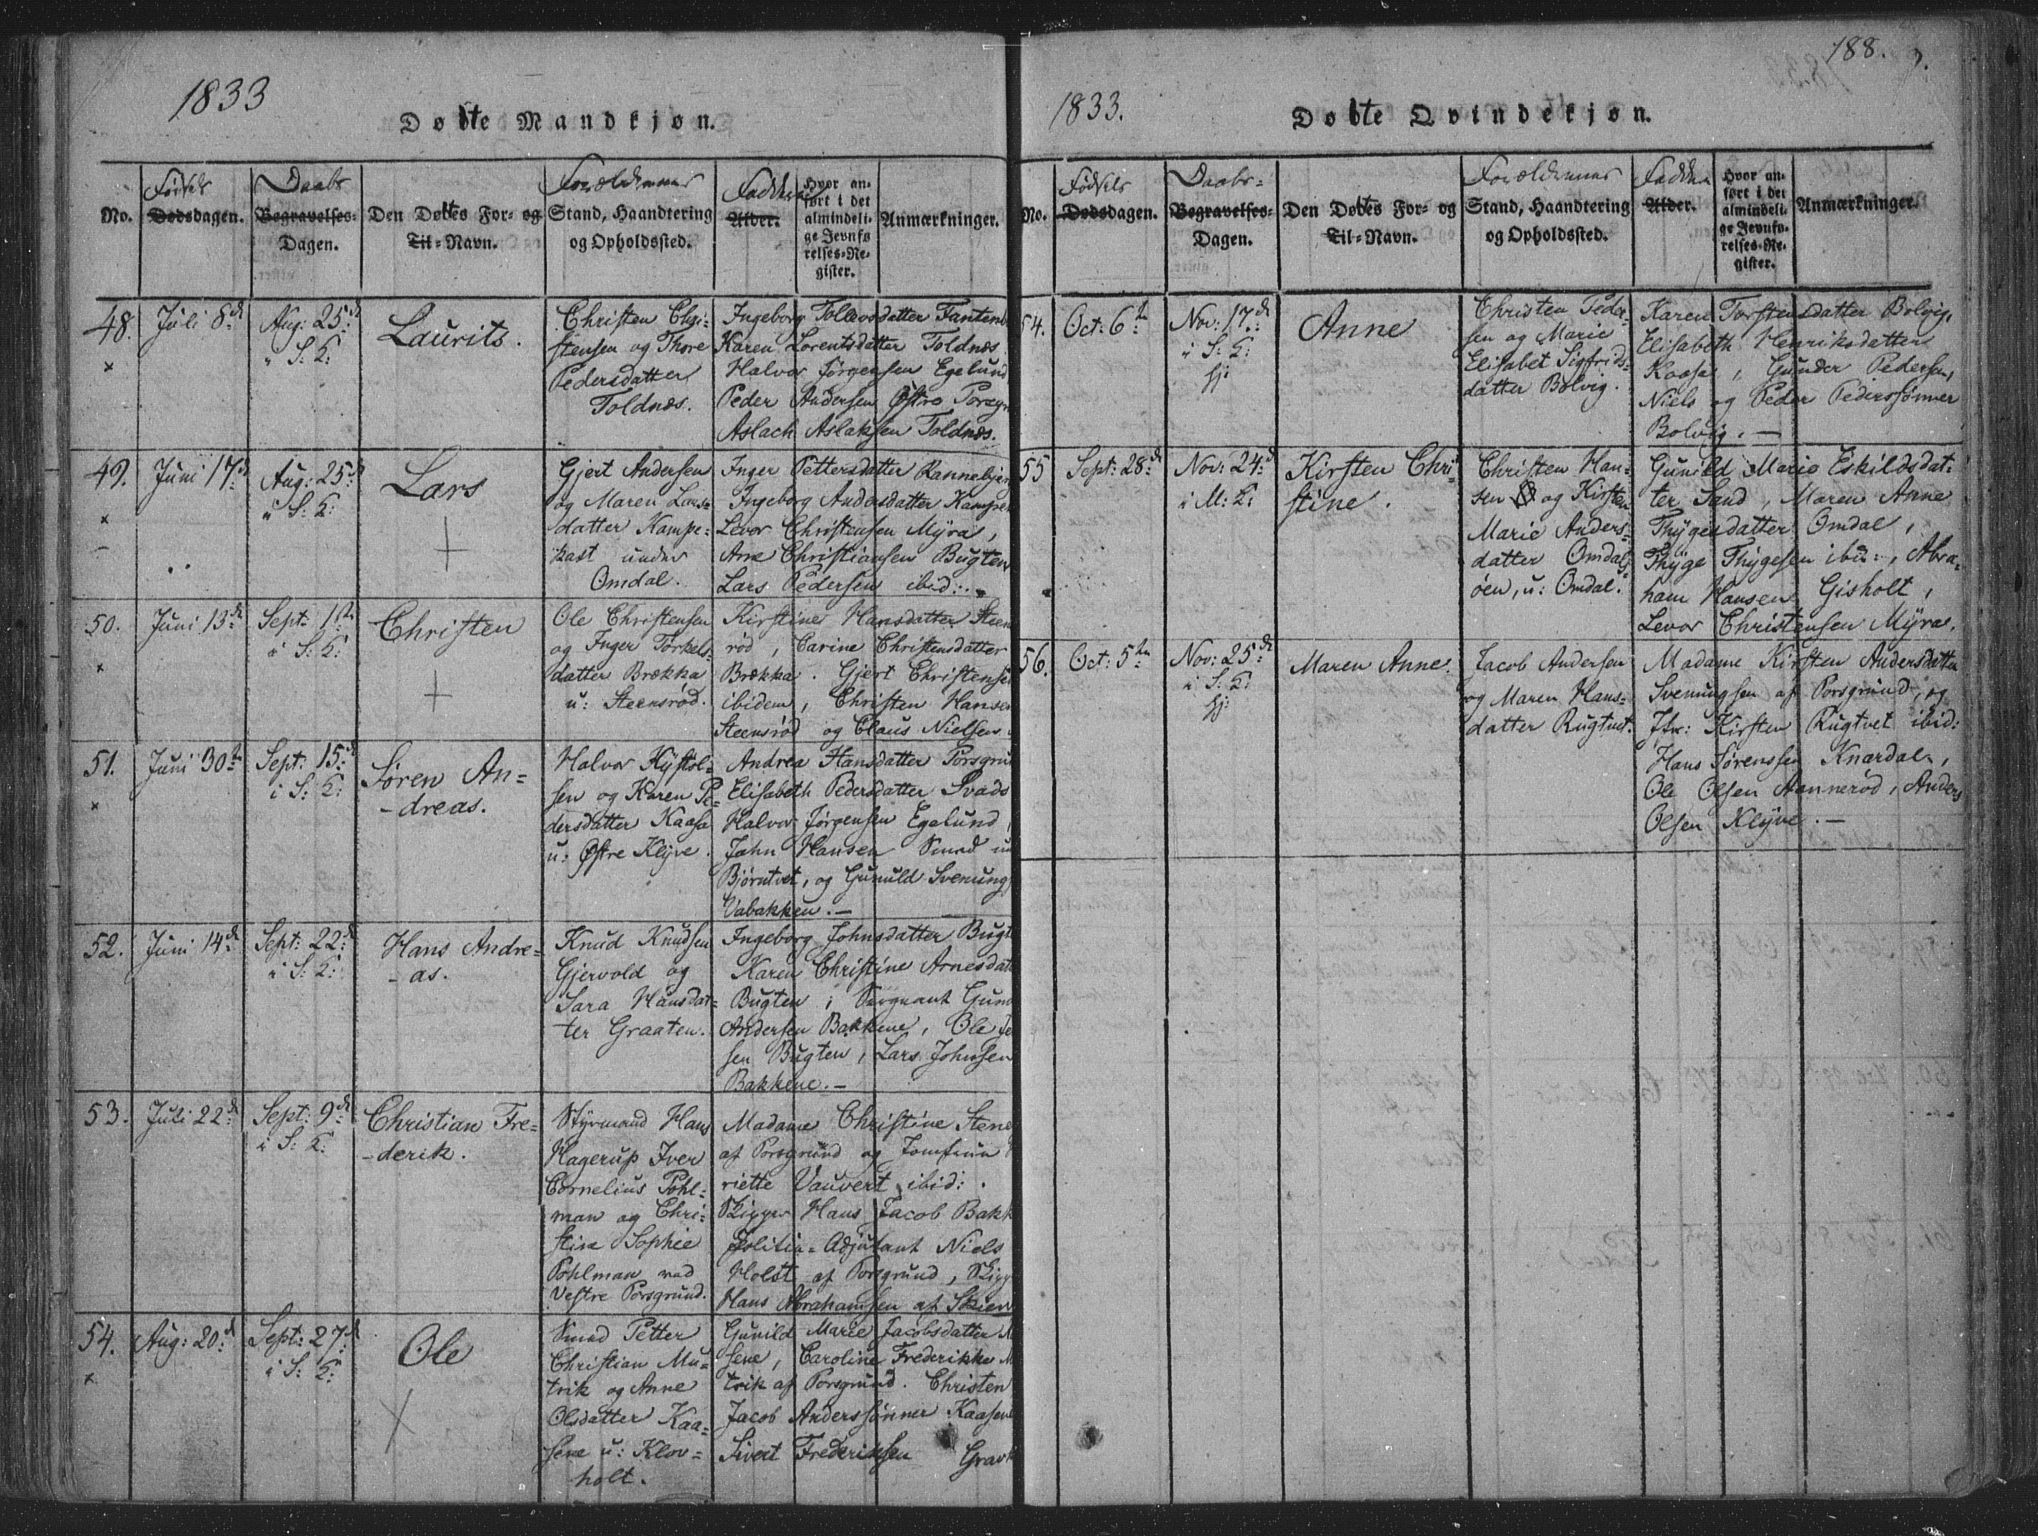 1833
Døbte Mandkjøn.
No.
Fødsels
Dødsdagen.
Daabs
Begravelses-
Dagen.
Den Døbtes For- og
Til-Navn.
Forældrenes
Stand, Haandtering
og Opholdssted.
Faddere
Alder.
Hvor an-
ført i det
almindeli-
ge Jevnfø-
relses-Re-
gister.
Anmærkninger.
48.
Juli 8de
Aug: 25de
i S: K:
Laurits.
Christen Chri-
stensen og Thore
Pedersdatter
Toldnæs.
Ingeborg Tollevsdatter
Karen Lorentsdatter Toldnæs
Halvor Jørgensen Egelund
Peder Andersen Østre
Aslach Aslaksen Toldnæs.
49.
Juni 17de
Aug: 25de
i S: K:
Lars
Gjert Andersen
og Maren Lars-
datter Kampe-
kast under
Omdal.
Inger Pettersdatter
Ingeborg Andersdatter
Levor Christensen Myra,
Arne Christiansen Bugten
Lars Pedersen ibid:.
50.
Juni 13de
Sept: 1ste
i S: K:
Christen
Ole Christensen
og Inger Torkels-
datter Brækka
u: Steensrød.
Kirstine Hansdatter Steens
rød, Carine Christensdatter
Brækka. Gjert Christensen
ibidem, Christen Hansen
Steensrød og Claus Nielsen
51.
Juni 30te
Sept: 15de
i S: K:
Søren An-
-dreas.
Halvor Kystol-
sen og Karen Pe-
dersdatter Kaasa
u: Østre Klyve.
Andrea Hansdatter Porsgru
Elisabeth Pedersdatter
Halvor Jørgensen Egelund,
John Hansen Smed
Bjørntvet, og Gunuld Svenung
Vabakken.—
52.
Juni 14de
Sept: 22de
i S: K:
Hans Andre-
-as.
Knud Knudsen
Gjervold og
Sara Hansdat-
ter Graaten.
Ingeborg Johnsdatter Bugt
Karen Christine Arnesdat
Bugten, Sergeant Gun
Andersen Bakkene, Ole
sen Bugten, Lars Johnsen
Bakkene.—
53.
Juli 22de
Sept: 9de
i S: K:
Christian Fre-
-derik.
Styrmand Hans
Hagerup Iver
Cornelius Pohl-
man og Chri-
stine Sophie
Pohlman ved
Vestre Porsgrund.
Madame Christine Stene
af Porsgrund og Jomfrue
riette Vauvert ibid:.
Skipper Hans Jacob Bakk
Politie-Adjutant Niels
Holst af Porsgrund, Skipp
Hans Abrahamsen af Skien
54.
Aug: 20de
Sept: 27de
i S: K:
Ole
Smed Petter
Christian Mu-
trik og Anne
Olsdatter Kaa-
sene u: Klov-
holt.
Gunild Marie Jacobsdatter
sene, Caroline Frederikke M
trik af Porsgrund. Christen
Jacob Anderssønner Kaasene
Sivert Frederiksen Gravk
188.
1833.
Døbte Qvindekjøn.
No.
Fødsels
Dødsdagen.
Daabs-
Begravelses-
Dagen.
Den Døbtes For- og
Til-Navn.
Forældrenes
Stand, Haandtering
og Opholdssted.
Faddere
Alder.
Hvor an-
ført i det
almindeli-
ge Jevnfø-
relses-Re-
gister.
Anmærkninger.
54.
Oct: 6te
Nov: 17de
i S: K:
hj:
Anne
Christen Peder-
sen og Marie
Elisabet Sigfrids-
datter Bolvig.
Karen Torstensdatter Bolvig,
Elisabeth Henriksdatter
Kaasa, Gunder Pedersen,
Niels og Peder Pederssønner
Bolvig.—
55
Sept: 28de
Nov: 24de
i M: K:
Kirsten Chri-
stine.
Christen Han-
sen og Kirsten
Marie Anders-
datter Omdals-
øen, u: Omdal.
Gunild Marie Eskildsdat-
ter Sand, Maren Anne
Thygesdatter Omdal,
Thyge Thygesen ibid:, Abra-
ham Hansen Gisholt,
Levor Christensen Myra.
56.
Oct: 5te
Nov: 25de
i S: K:
hj:
Maren Anne.
Jacob Andersen
og Maren Hans-
datter Rugtvet.
Madame Kirsten Andersdatter
Svenungsen af Porsgrund, og
Jfr: Kirsten Rugtvet ibid:
Hans Sørenssen Knardal,
Ole Olsen Aannerød, Anders
Olsen Klyve.—